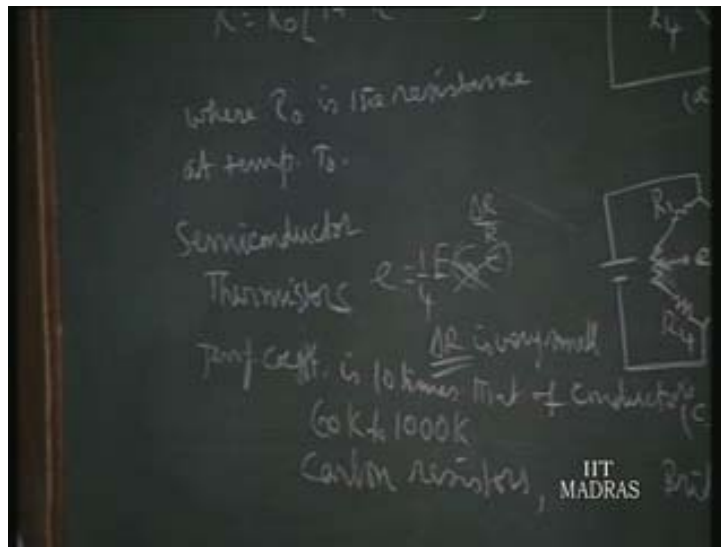 R = R₀[1+
R₄
where R₀ is the resistance
at temp. T₀.
Semiconductor
Thermistors
e = 1/4 E
ΔR/R
R₁
e
R₄
ΔR is very small
Temp coefft. is 10 times that of conductors
60K to 1000K
Carbon resistors,
IIT
MADRAS